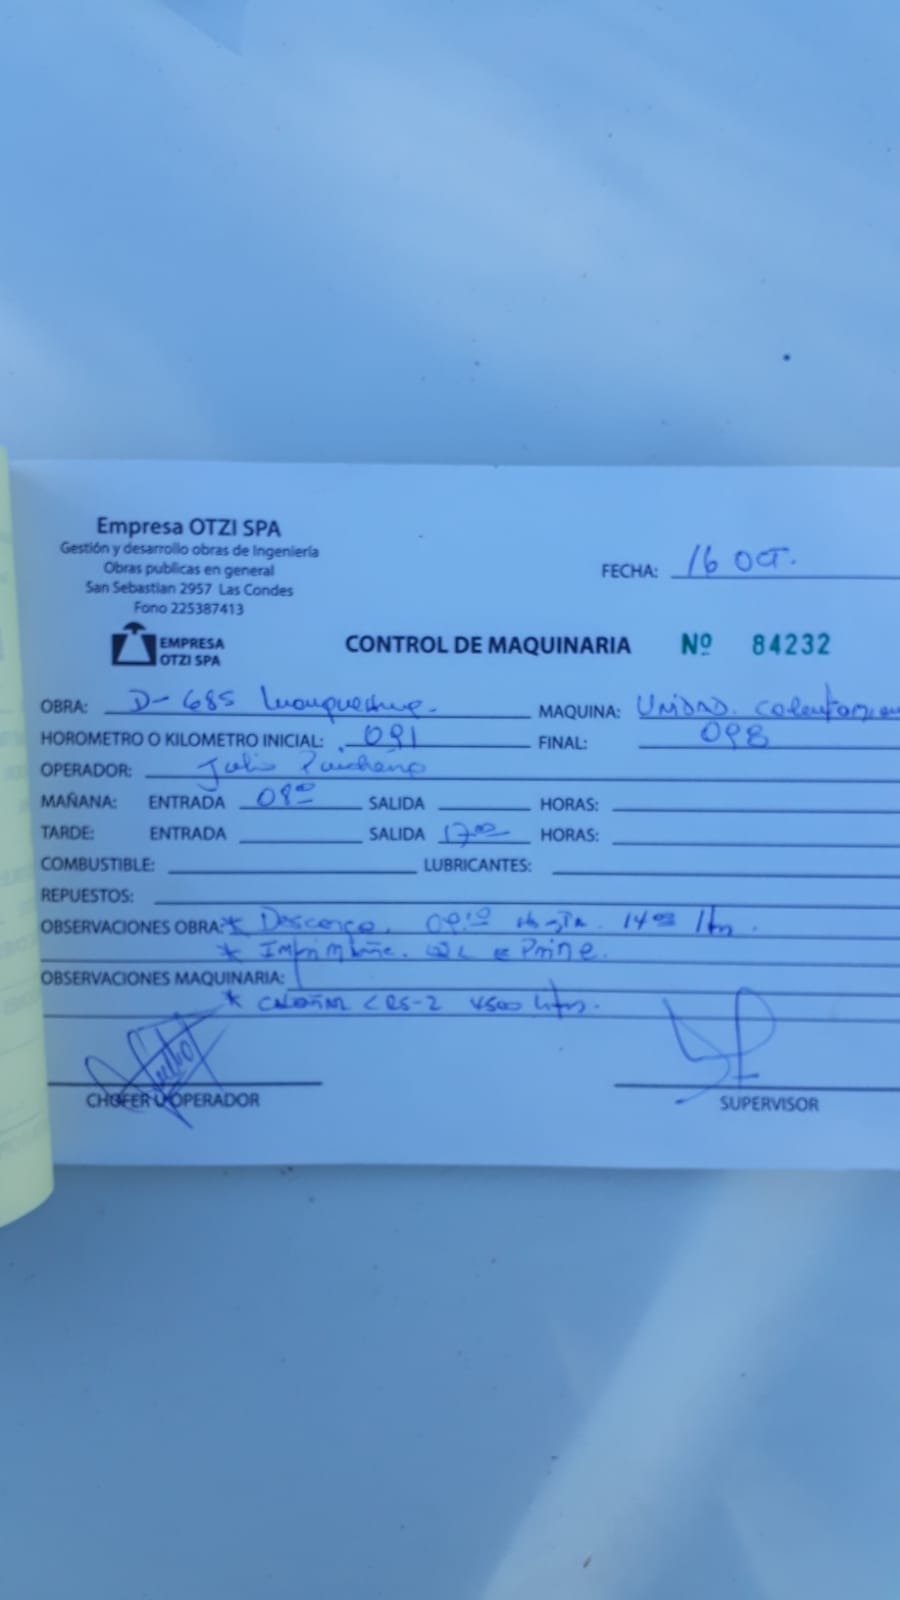 Empresa OTZI SPA
Gestión y desarrollo obras de Ingeniería
Obras publicas en general
San Sebastian 2957 Las Condes
Fono 225387413
EMPRESA
OTZI SPA
FECHA: 16 OCT.
CONTROL DE MAQUINARIA Nº 84232
OBRA: D-685 MAQUINA: UNIDAD.
HOROMETRO O KILOMETRO INICIAL: 091 FINAL: 098
OPERADOR: Julio
MAÑANA: ENTRADA 08:00 SALIDA HORAS:
TARDE: ENTRADA SALIDA 17:00 HORAS:
COMBUSTIBLE: LUBRICANTES:
REPUESTOS:
OBSERVACIONES OBRA: * Descarga. 09:10 hasta. 14:00
*
OBSERVACIONES MAQUINARIA:
* CRS-2 4500
CHOFER U OPERADOR
SUPERVISOR